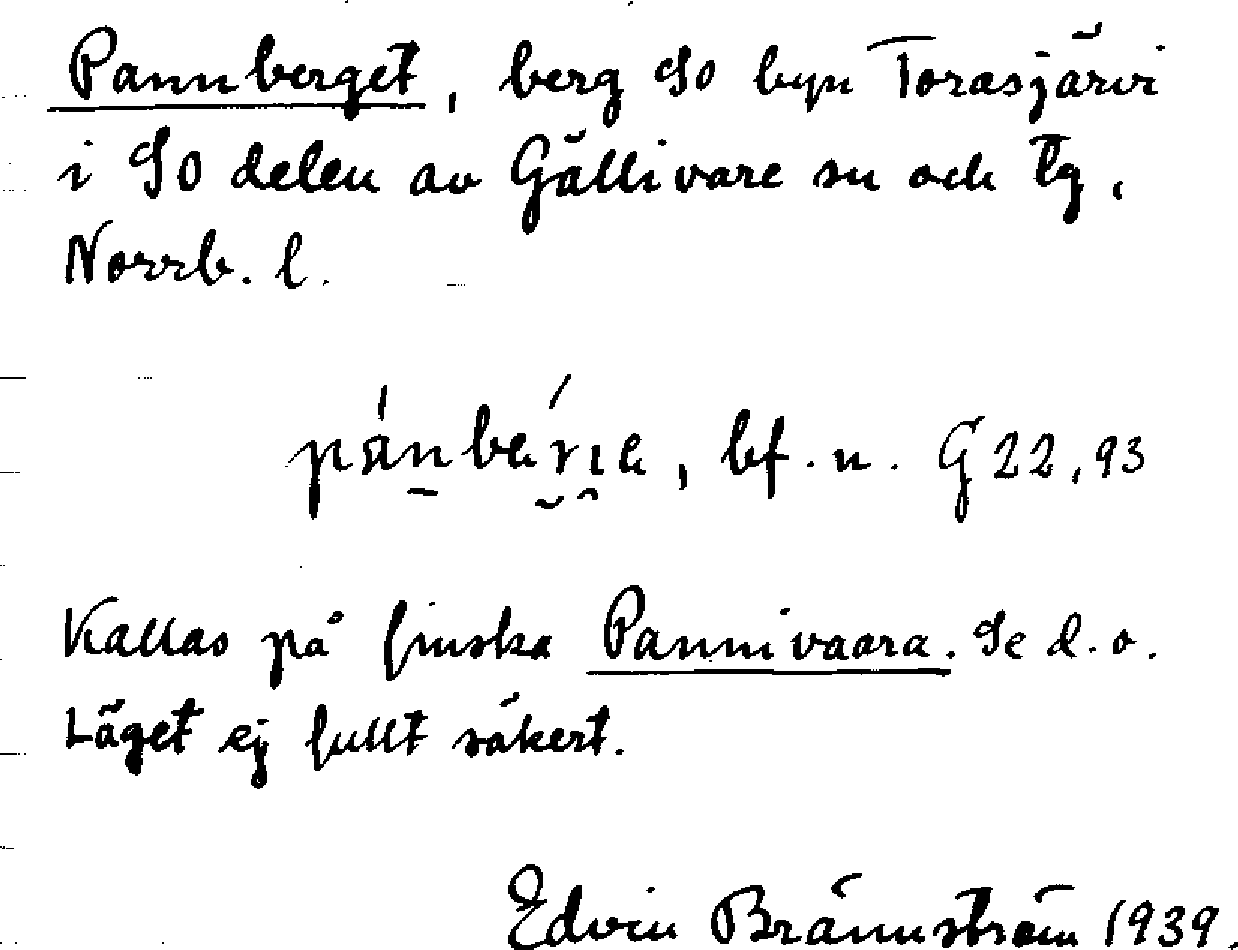 Pannberget, berg So byn Torasjärvi
i So delen av Gällivare sn och tg,
Norrb. l.
bf. n. G 22, 93
Kallas på finska Pannivaara. Se d. o.
Läget ej fullt säkert.
Edvin Brännström 1939.